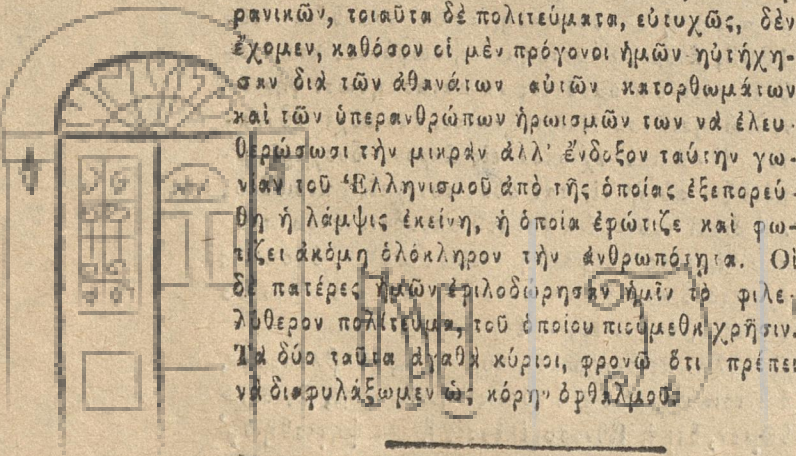 ρανικῶν, τοιαῦτα δὲ πολιτεύματα, εὐτυχῶς, δὲν
ἔχομεν, καθόσον οἱ μὲν πρόγονοι ἡμῶν ηὐτήχη-
σαν διὰ τῶν ἀθανάτων αὐτῶν κατορθωμάτων
καὶ τῶν ὑπερανθρώπων ἡρωισμῶν των νὰ ἐλευ-
θερώσωσι τὴν μικρὰν ἀλλ' ἔνδοξον ταύτην γω-
νίαν τοῦ Ἑλληνισμοῦ ἀπὸ τῆς ὁποίας ἐξεπορεύ-
θη ἡ λάμψις ἐκείνη, ἡ ὁποία ἐφώτιζε καὶ φω-
τίζει ἀκόμη ὁλόκληρον τὴν ἀνθρωπότητα. Οἱ
δὲ πατέρες ἡμῶν ἐφιλοδώρησαν ἡμῖν τὸ φιλε-
λύθερον πολίτευμα, τοῦ ὁποίου πιούμεθα χρῆσιν.
Τὰ δύο ταῦτα ἀγαθὰ κύριοι, φρονῶ ὅτι πρέπει
νὰ διαφυλάξωμεν ὡς κόρην ὀφθαλμοῦ.